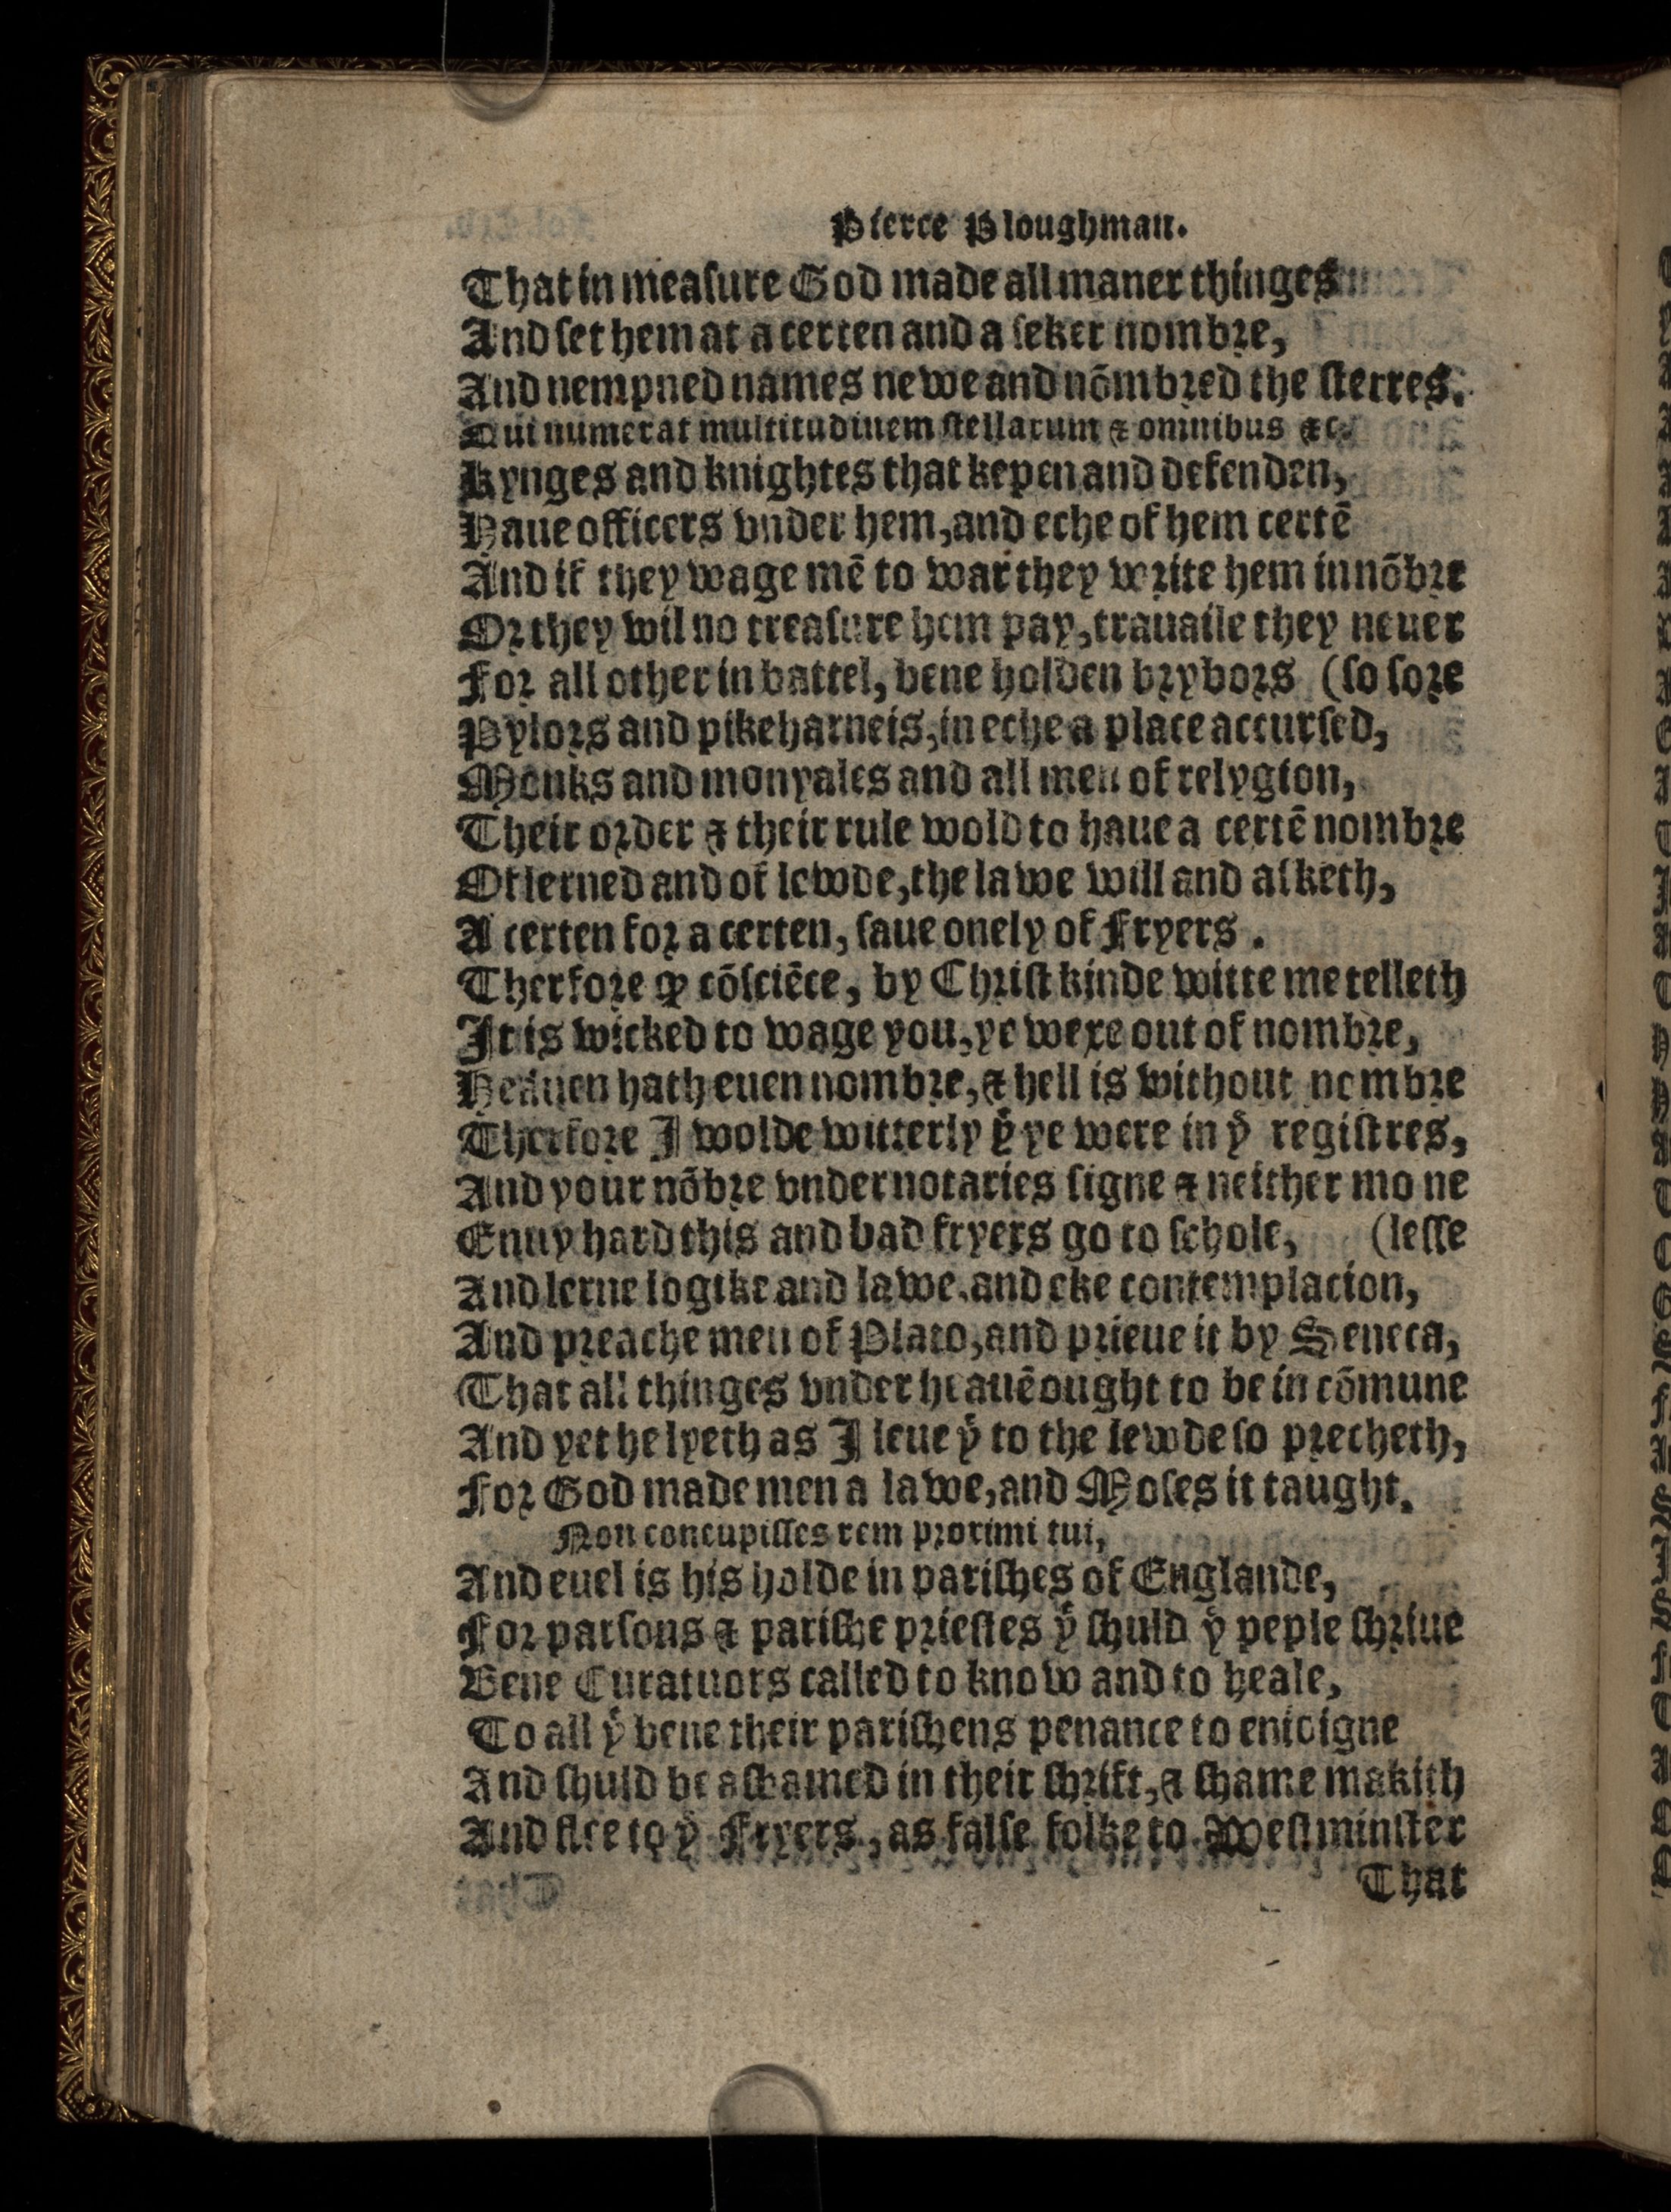 Pierce Ploughman.
That in meaſure God made all maner thinges
And ſet hem at a certen and a ſeker nombre,
And nempned names newe and nõmbred the ſterres.
Qui numerat multitudinem ſtellarum & omnibus &c.
Kynges and knightes that kepen and defenden,
Haue officers vnder hem, and eche of hem certẽ
And if they wage mẽ to war they write hem in nõbre
Or they wil no treaſure hem pay, trauaile they neuer
For all other in battel, bene holden brybors (ſo ſore
Pylors and pikeharneis, in eche a place accurſed,
Monks and monyales and all men of relygion,
Their order & their rule wold to haue a certẽ nombre
Of lerned and of lewde, the lawe will and aſketh,
A certen for a certen, ſaue onely of Fryers.
Therfore ꝙ cõſciẽce, by Chriſt kinde witte me telleth
It is wicked to wage you, ye wexe out of nombre,
Heauen hath euen nombre, & hell is without nombre
Therfore I wolde witterly yͭ ye were in yͤ regiſtres,
And your nõbre vnder notaries ſigne & neither mo ne
Enuy hard this and bad fryers go to ſchole, (leſſe
And lerne logike and lawe, and eke contemplacion,
And preache men of Plato, and prieue it by Seneca,
That all thinges vnder heauẽ ought to be in cõmune
And yet he lyeth as I leue yͭ to the lewde ſo precheth,
For God made men a lawe, and Moſes it taught.
Non concupiſſes rem proximi tui,
And euel is his holde in pariſhes of Englande,
For parſons & pariſhe prieſtes yͭ ſhuld yͤ peple ſhriue
Bene Curatuors called to know and to heale,
To all yͭ bene their pariſhens penance to enioigne
And ſhuld be aſhamed in their ſhrift, & ſhame makith
And flee to yͤ Fryers, as falſe folke to Weſtminſter
That